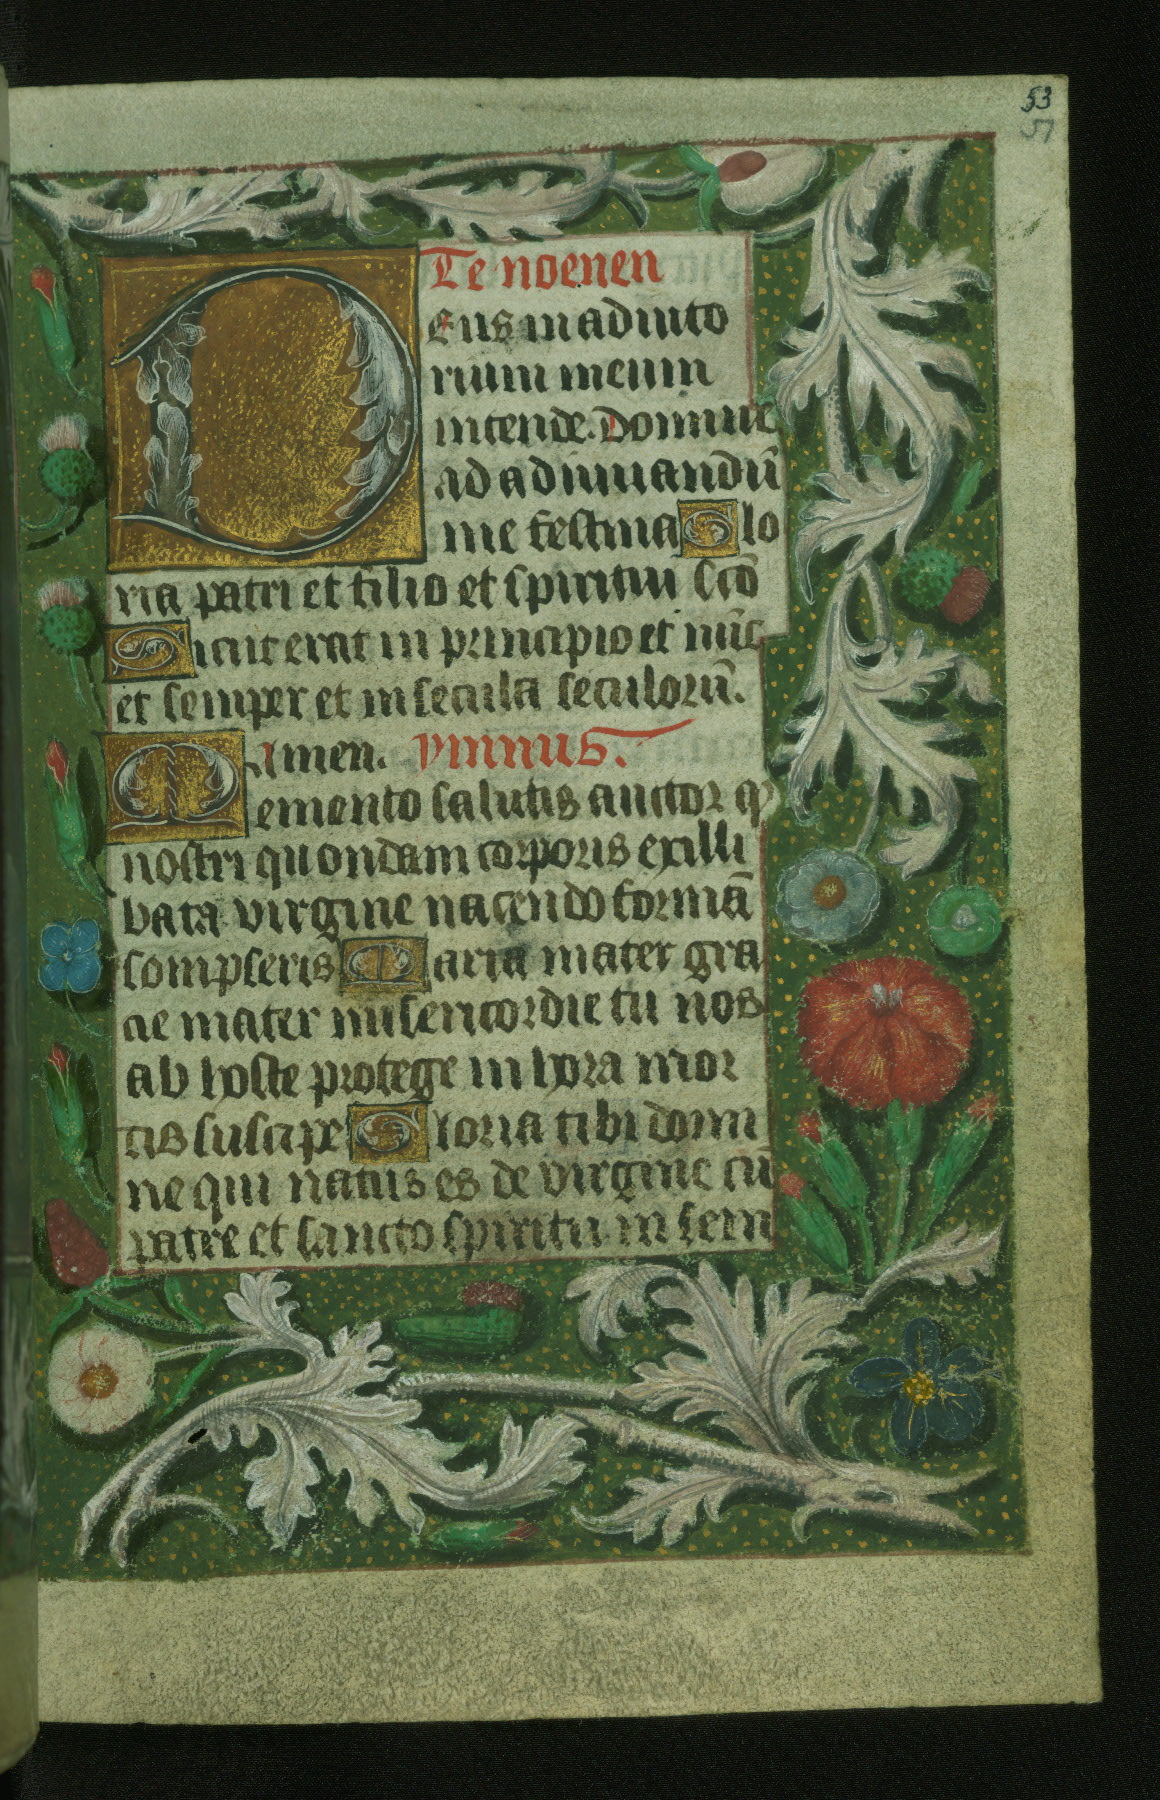 53
57
Te noenen
Deus in adiuto
rium meum
intende. Domine
ad adiuuandū
me festina Glo
ria patri et filio et spiritui scō
Sicut erat in principio et nūc
et semper et in secula seculorū.
Amen. ymnus.
Memento salutis auctor q
nostri quondam corporis exilli
bata virgine nacendo formā
sompseris Maria mater gra
cie mater misericordie tu nos
ab hoste protege in hora mor
tis suscipe Gloria tibi domi
ne qui natus es de virgine cū
patre et sancto spiritu in sem